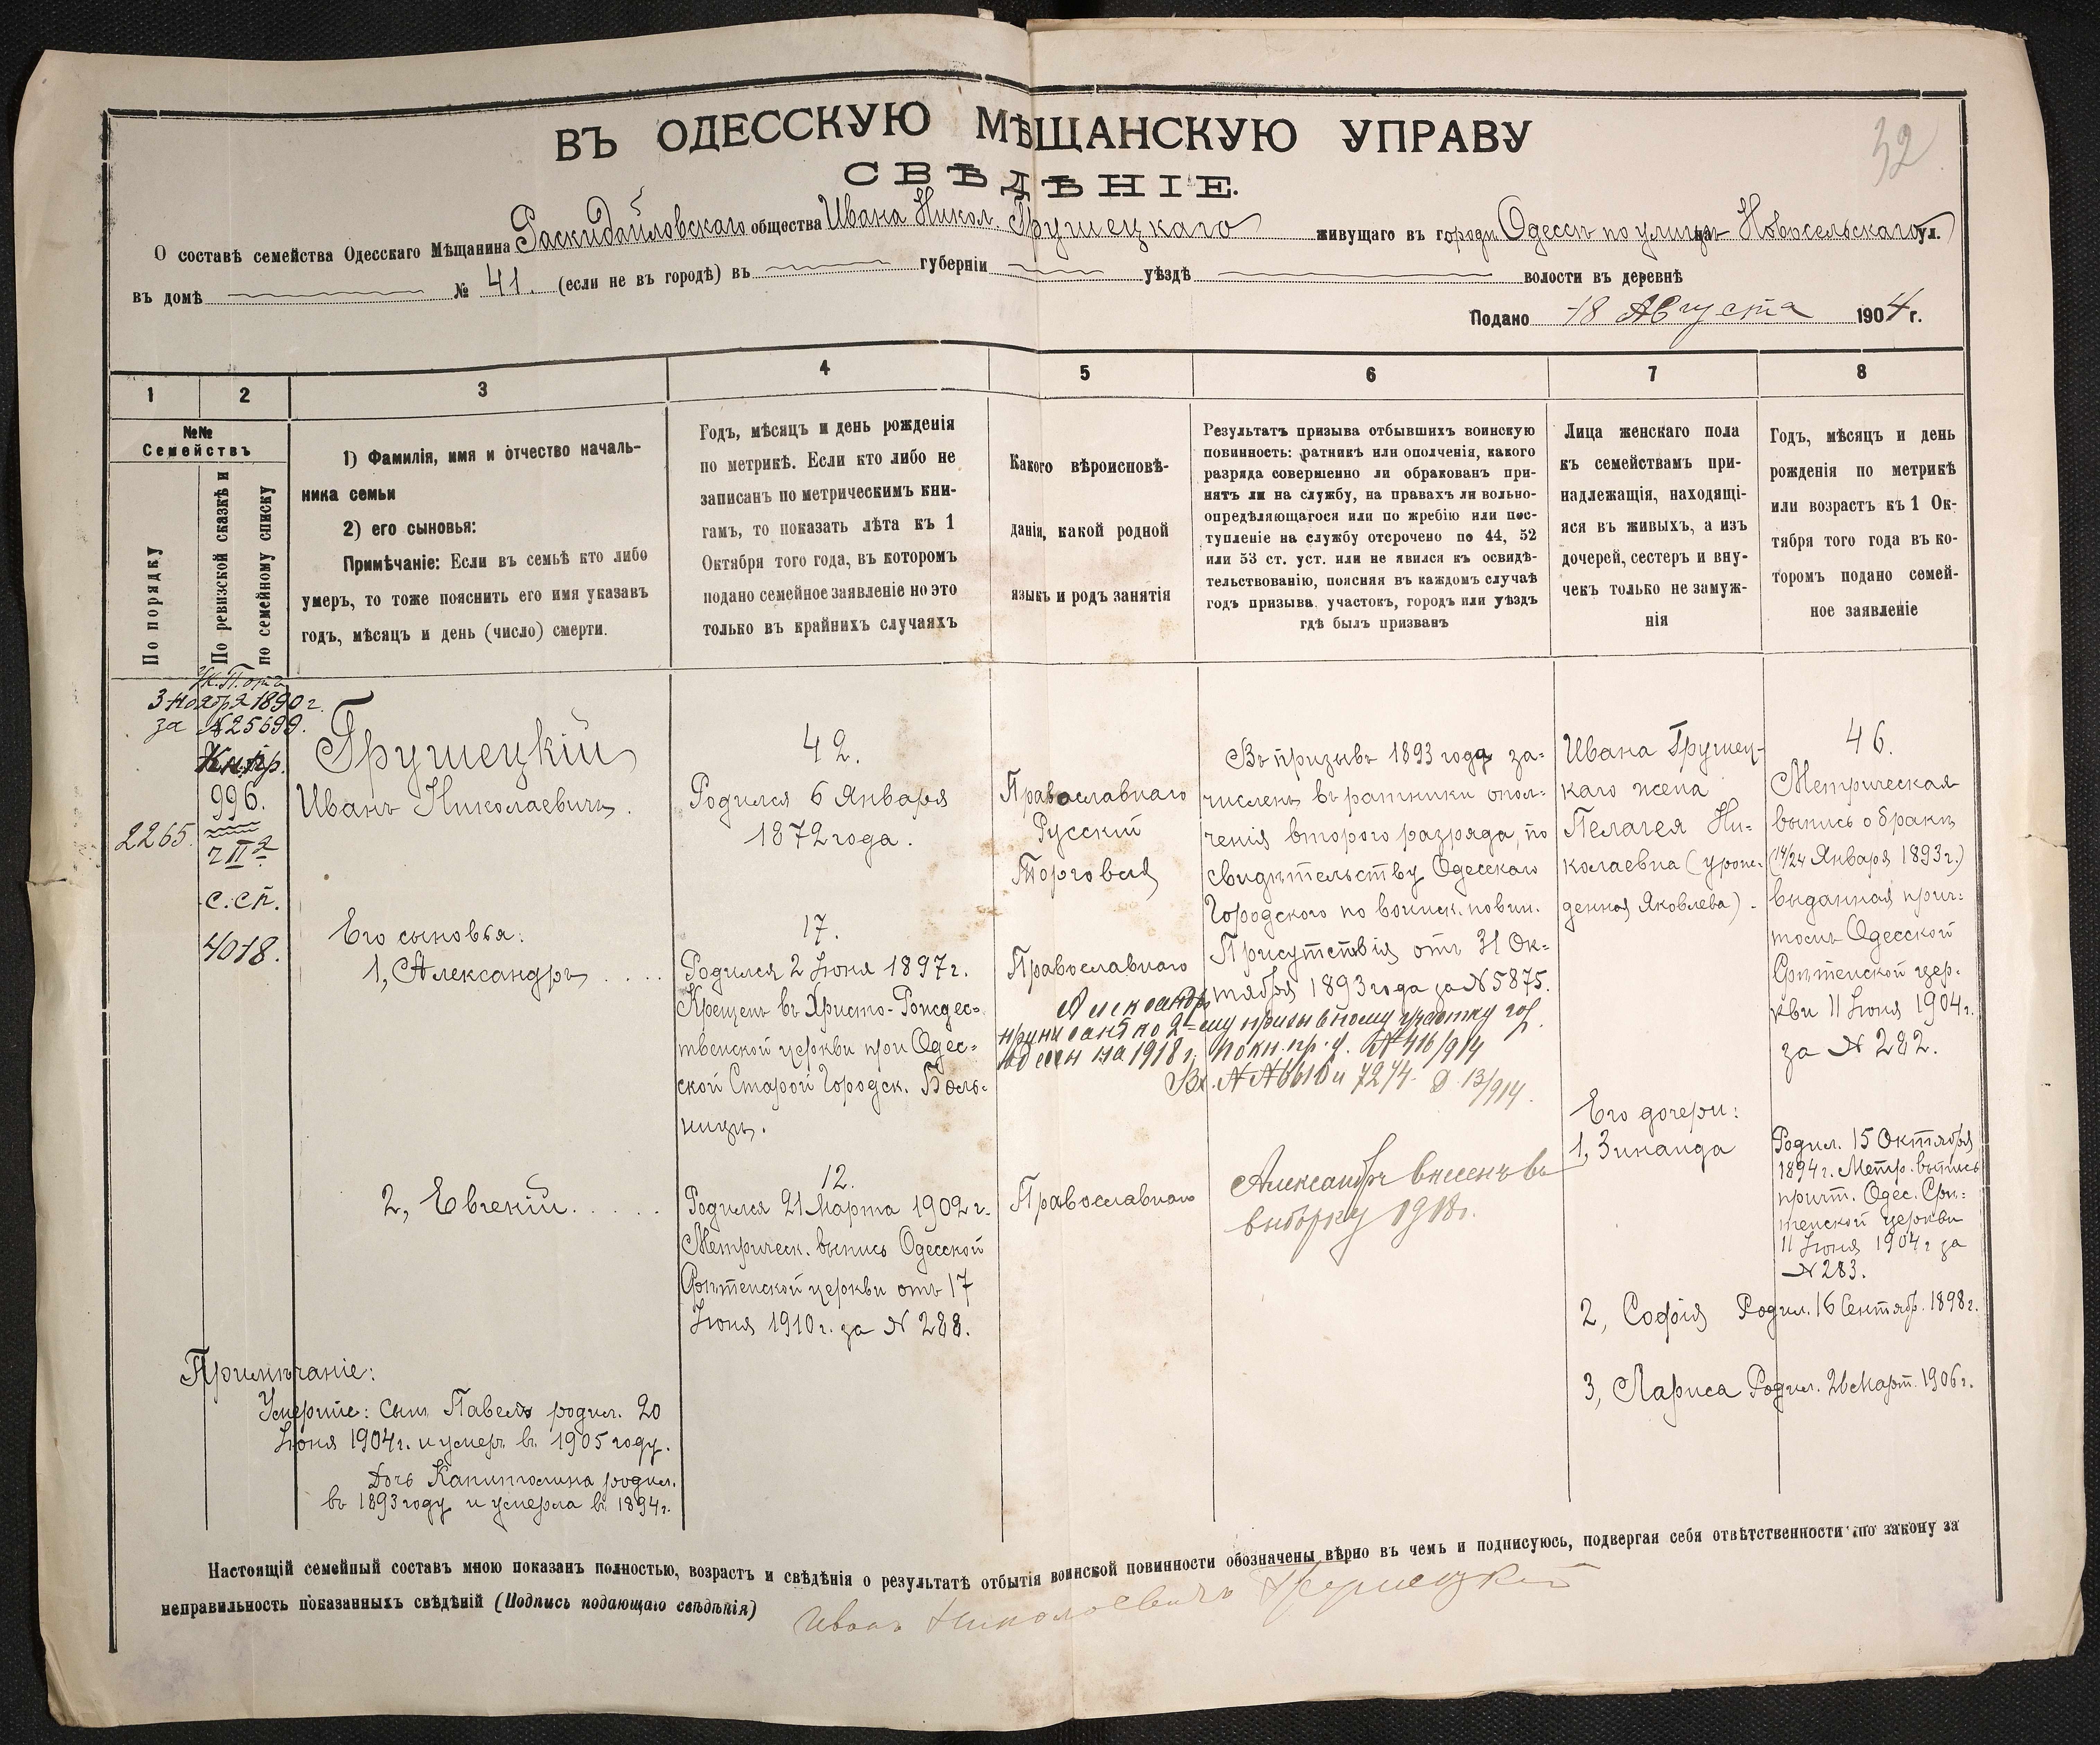 32
ВЪ ОДЕССКУЮ МѢЩАНСКУЮ УПРАВУ
СВѢДѢНІЕ.
О составѣ семейства Одесскаго Мѣщанина Раскидайловскаго общества Ивана Никол. Грушецкаго живущаго въ городѣ Одессѣ по улицѣ Новосельскаго ул.
въ домѣ № 41. (если не въ городѣ) въ губерніи уѣздѣ волости въ деревнѣ
Подано 18 Августа 1904 г.
1 2 3 4 5 6 7 8
№№
Семействъ
По порядку
По ревизской сказкѣ и
по семейному списку
1) Фамилія, имя и отчество началь-
ника семьи
2) его сыновья:
Примѣчаніе: Если въ семьѣ кто либо
умеръ, то тоже пояснить его имя указавъ
годъ, мѣсяцъ и день (число) смерти.
Годъ, мѣсяцъ и день рожденія
по метрикѣ. Если кто либо не
записанъ по метрическимъ кни-
гамъ, то показать лѣта къ 1
Октября того года, въ которомъ
подано семейное заявленіе но это
только въ крайнихъ случаяхъ
Какого вѣроисповѣ-
данія, какой родной
языкъ и родъ занятія
Результатъ призыва отбывшихъ воинскую
повинность: ратникѣ или ополченія, какого
разряда совершенно ли обракованъ при-
нятъ ли на службу, на правахъ ли вольно-
опредѣляющагося или по жребію или пос-
тупленіе на службу отсрочено по 44, 52
или 53 ст. уст. или не явился къ освидѣ-
тельствованію, поясняя въ каждомъ случаѣ
годъ призыва, участокъ, городъ или уѣздъ
гдѣ былъ призванъ
Лица женскаго пола
къ семействамъ при-
надлежащія, находящі-
яся въ живыхъ, а изъ
дочерей, сестеръ и вну-
чекъ только не замуж-
нія
Годъ, мѣсяцъ и день
рожденія по метрикѣ
или возрастъ къ 1 Ок-
тября того года въ ко-
торомъ подано семей-
ное заявленіе
Ук. П. отъ
3 Ноября 1890 г.
за № 25699.
Кн. пр.
996.
2265.
ч II-я
с. сп.
4018.
Грушецкій
Иванъ Николаевичъ.
Его сыновья:
1, Александръ . . . .
2, Евгеній . . . . .
42.
Родился 6 Января
1872 года.
17.
Родился 2 Іюня 1897 г.
Крещенъ въ Христо-Рождес-
твенской церкви при Одес-
ской Старой Городск. Боль-
ницѣ.
12.
Родился 21 Марта 1902 г.
Метрическ. выпись Одесской
Срѣтенской церкви отъ 17
Іюня 1910 г. за № 288.
Православнаго
Русскій
Торговля
Православнаго
Православнаго
Въ призывъ 1893 года за-
численъ въ ратники опол-
ченія второго разряда, по
свидѣтельству Одесскаго
Городского по воинск. повин.
Присутствія отъ 31 Ок-
тября 1893 года за № 5875.
Александръ
приписанъ по 2-му призывному участку гор.
Одессы на 1918 г. по кн. пр. у. № 416/914
Вх. № 7274. Д 13/914.
Александръ внесенъ въ
выборку 1918 г.
Ивана Грушец-
каго жена
Пелагея Ни-
колаевна (урож-
денная Яковлева).
Его дочери:
1, Зинаида
2, Софія Родил. 16 Сентябр. 1898 г.
3, Лариса Родил. 26 Март. 1906 г.
46.
Метрическая
выпись о бракѣ
(14/24 Января 1893 г.)
выданная прич-
томъ Одесской
Срѣтенской цер-
кви 11 Іюня 1904 г.
за № 282.
Родил. 15 Октября
1894 г. Метр. выпись
причт. Одес. Срѣ-
тенской церкви
11 Іюня 1904 г за
№ 283.
Примѣчаніе:
Умершіе: сынъ Павелъ родил. 20
Іюня 1904 г. и умеръ въ 1905 году.
Дочь Капитолина родил.
въ 1893 году и умерла въ 1894 г.
Настоящій семейный составъ мною показанъ полностью, возрастъ и свѣдѣнія о результатѣ отбытія воинской повинности обозначены вѣрно въ чемъ и подписуюсь, подвергая себя отвѣтственности по закону за
неправильность показанныхъ свѣдѣній (Подпись подающаго свѣдѣнія) Иванъ Николаевичъ Грушецкій